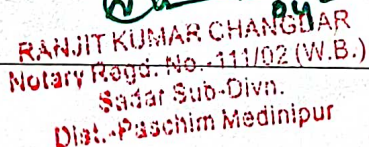 RANJIT KUMAR CHANGDAR
Notary Regd. No.-111/02 (W.B.)
Sadar Sub-Divn.
Dist.-Paschim Medinipur